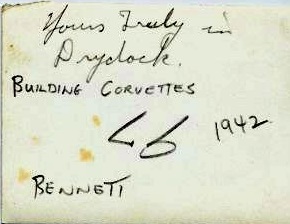 Yours Truly in
Drydock.
BUILDING CORVETTES
1942
BENNETT